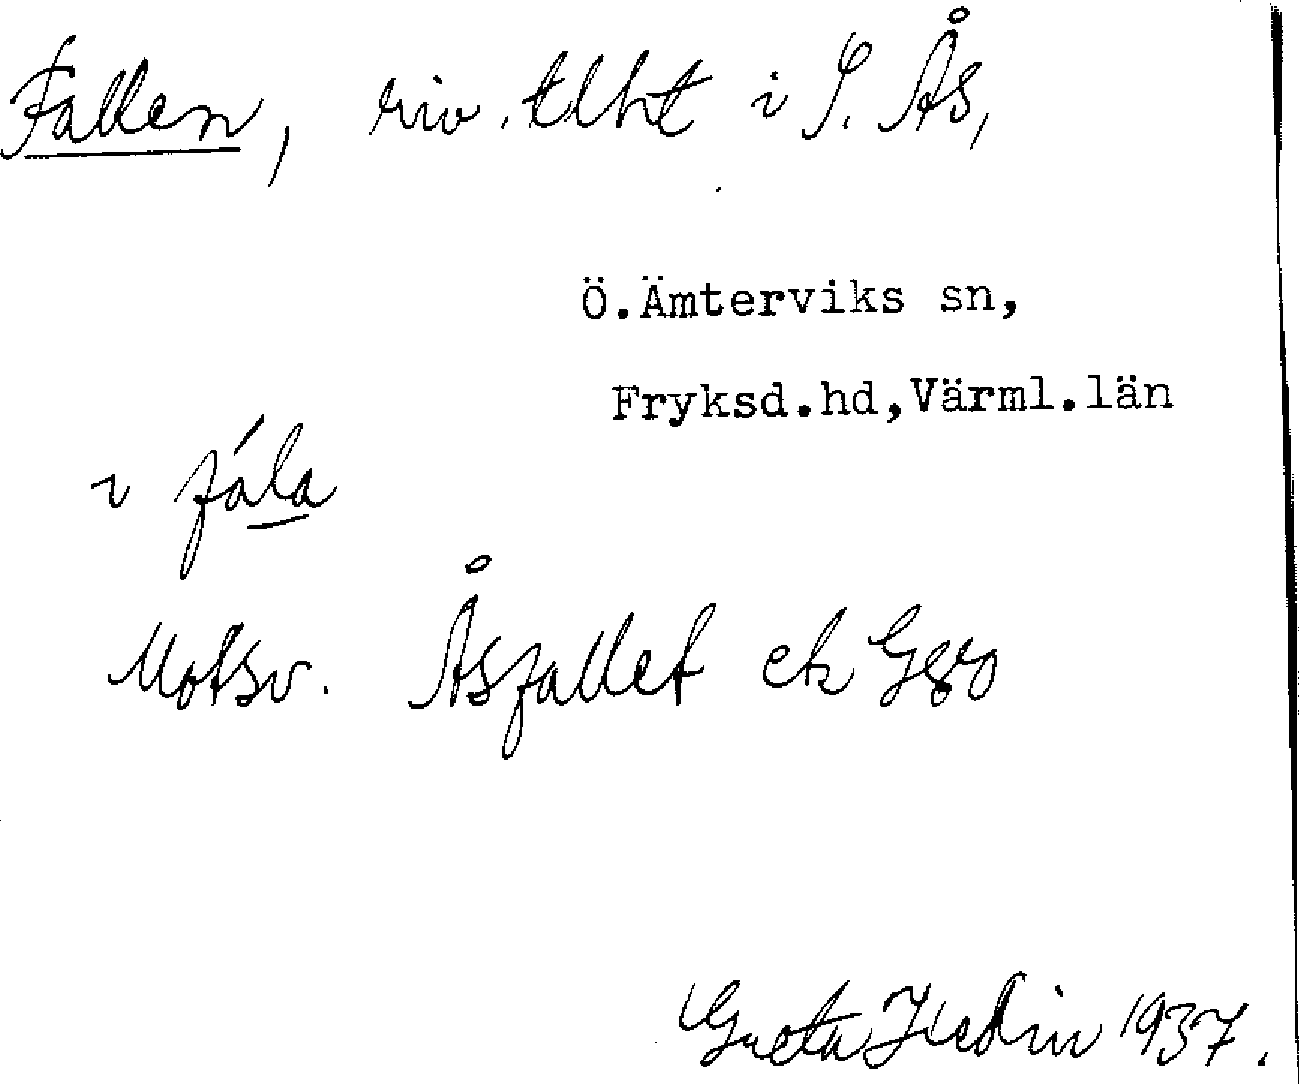 Fallen, riv. tlht i S. Ås,
Ö.Ämterviks sn,
Fryksd.hd,Värml.län
i fála
Motsv. Åsfallet ek Gsro
Greta Hedin 1937.